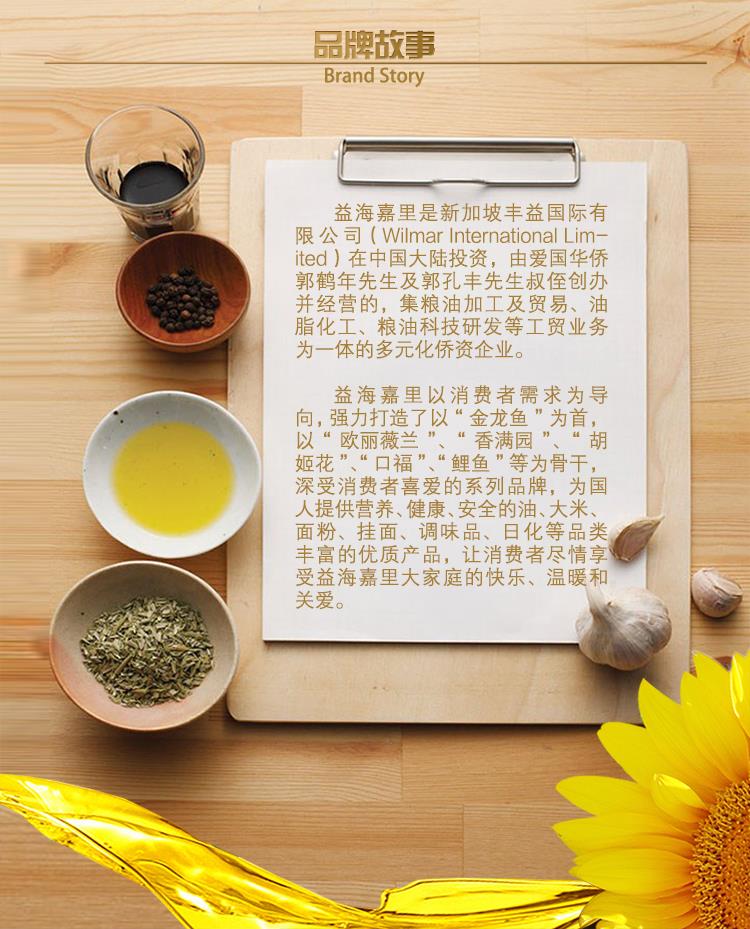 品牌故事
Brand Story
益海嘉里是新加坡丰益国际有
限公司（Wilmar International Lim-
ited）在中国大陆投资，由爱国华侨
郭鹤年先生及郭孔丰先生叔侄创办
并经营的，集粮油加工及贸易、油
脂化工、粮油科技研发等工贸业务
为一体的多元化侨资企业。
益海嘉里以消费者需求为导
向，强力打造了以“金龙鱼”为首，
以“欧丽薇兰”、“香满园”、“胡
姬花”、“口福”、“鲤鱼”等为骨干，
深受消费者喜爱的系列品牌，为国
人提供营养、健康、安全的油、大米、
面粉、挂面、调味品、日化等品类
丰富的优质产品，让消费者尽情享
受益海嘉里大家庭的快乐、温暖和
关爱。